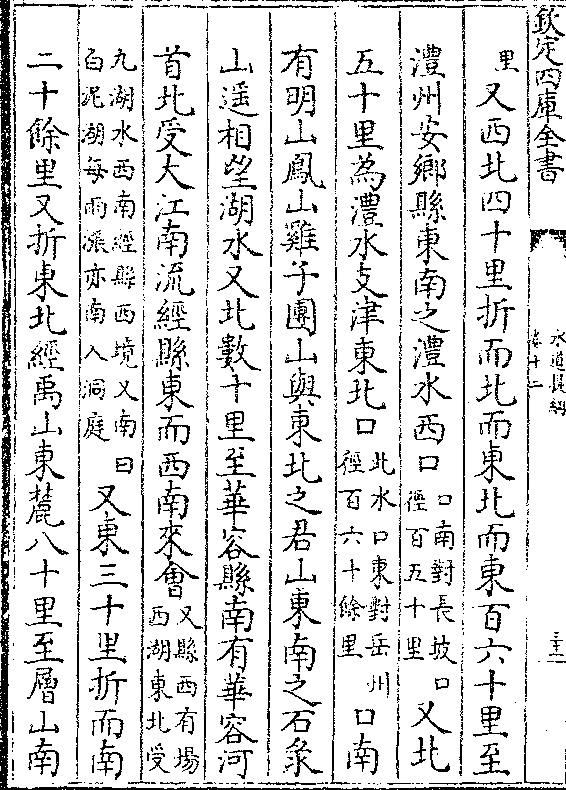 欽定四庫全書
水道提綱
卷十二
里
又西北四十里折而北而東北而東百六十里至
澧州安鄉縣東南之澧水西口
口南對長坡口
徑百五十里
又北
五十里為澧水支津東北口
此水口東對岳州
徑百六十餘里
口南
有明山鳳山雞子團山與東北之君山東南之石㟳
山遥相望湖水又北數十里至華容縣南有華容河
首北受大江南流經縣東而西南來會
又縣西有場
西湖東北受
九湖水西南經縣西境又南曰
白泥湖每雨漲亦南入洞庭
又東三十里折而南
二十餘里又折東北經禹山東麓八十里至層山南